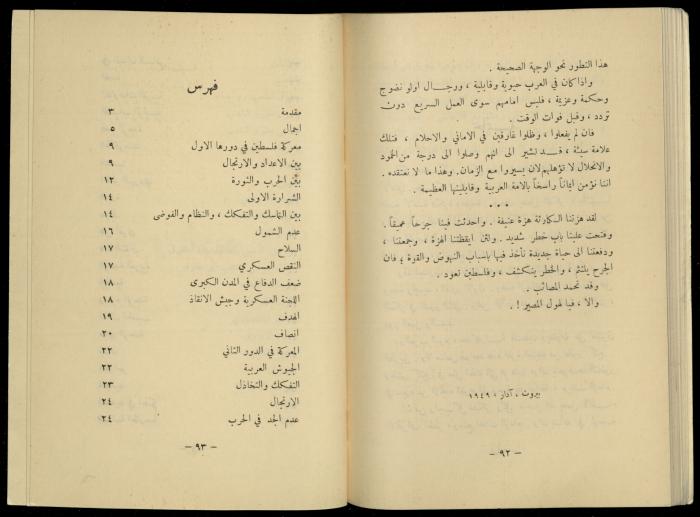 هذا التطور نحو الوجهة الصحيحة .
واذا كان في العرب حيوية وقابلية ، ورجال اولو نضوج
وحكمة وعزيمة ، فليس امامهم سوى العمل السريع دون
تردد ، وقبل فوات الوقت .
فان لم يفعلوا ، وظلوا غارقين في الاماني والاحلام ، فتلك
علامة سيئة ، قد تشير الى انهم وصلوا الى درجة من الخمود
والانحلال لا تؤهلهم لان يسيروا مع الزمان. وهذا ما لا نعتقده .
اننا نؤمن ايماناً راسخاً بالامة العربية وقابليتها العظيمة .
٠ ٠ ٠
لقد هزتنا الكارثة هزة عنيفة . واحدثت فينا جرحاً عميقاً .
وفتحت علينا باب خطر شديد . ولئن ايقظتنا الهزة ، وجمعتنا ،
ودفعتنا الى حياة جديدة نأخذ فيها باسباب النهوض والقوة ؛ فان
الجرح يلتئم ، والخطر ينكشف ، وفلسطين تعود .
وقد نحمد المصائب .
والا ، فيا لهول المصير ! .
بيروت ، آذار ، ١٩٤٩
- ٩٢ -
فهرس
مقدمة ٣
اجمال ٥
معركة فلسطين في دورها الاول ٩
بين الاعداد والارتجال ٩
بين الحرب والثورة ١٢
الشرارة الاولى ١٤
بين التماسك والتفكك ، والنظام والفوضى ١٤
عدم الشمول ١٦
السلاح ١٧
النقص العسكري ١٧
ضعف الدفاع في المدن الكبرى ١٨
اللجنة العسكرية وجيش الانقاذ ١٨
الهدف ١٩
انصاف ٢٠
المعركة في الدور الثاني ٢٢
الجيوش العربية ٢٢
التفكك والتخاذل ٢٣
الارتجال ٢٤
عدم الجد في الحرب ٢٤
- ٩٣ -